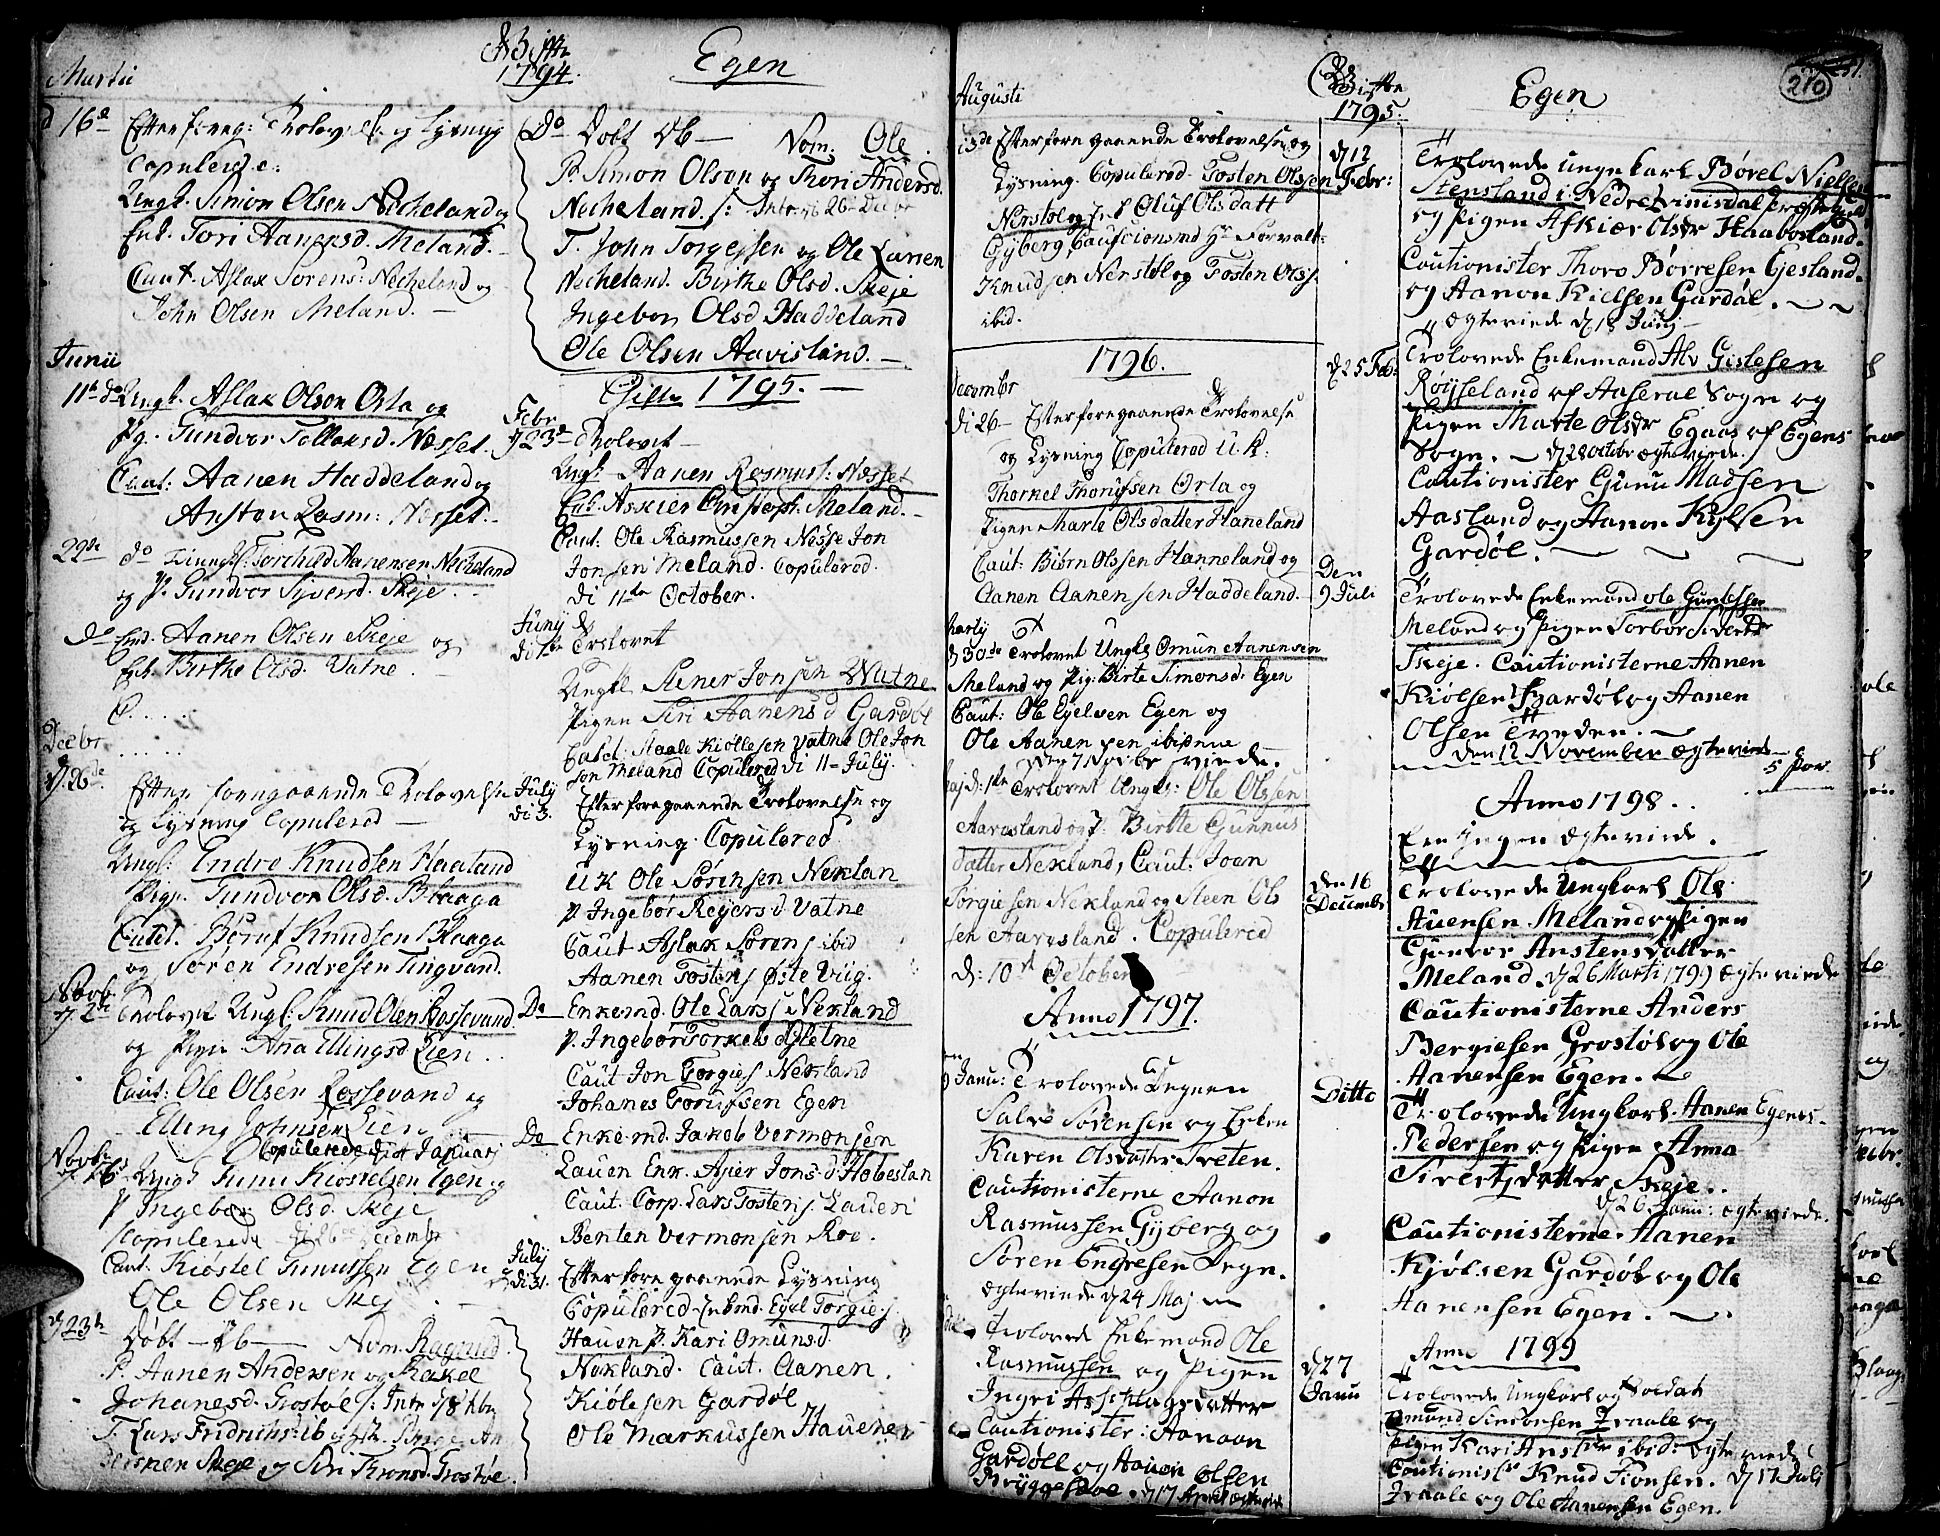 Martii
Gifte
1794.
Egen
d 16de Efter foreg: Trolovelse og Lysning
Copulerede:
Ungk. Simon Olsen Necheland og
Enk. Tori Aanensd. Meland.
Caut. Aslax Sorens: Necheland og
John Olsen Meland.
Junii
11te do Ungk. Aslax Olson Orla og
Pg. Gundvor Tollaksd. Næsset.
Caut: Aanen Haddeland og
Ansten Rasm: Næsset.
22de do Torchild Aanensen Necheland
og P. Gundvor Syversd. Skeje.
do Enk. Aanen Olsen Skeje og
Enk. Birthe Olsd. Vatne.
Decbr
d. 26de
Efter foregaaende Trolovelse
og Lysning Copulered
Ungk: Endre Knudsen Haaland
Pige. Gundvor Olsd. Blaaga
Caut. Beruf Knudsen Blaaga
og Søren Endresen Tingvand.
Novb.
d. 2de Trolovet Ungk: Knud Olen Røssevand
og Pigen Anna Ellingsd Lien.
Caut: Ole Olsen Rossevand og
Elling Johnsen Lien
Copulerede Januarj
Novbr
Ungk Gunu Kiøstelsen Egen og
P Ingebor Olsd. Skeje
Copulerede di 26de Decembr
Caut. Kiøstel Gunulsen Egen
Ole Olsen Skej
d 23de
Døbt Nom. Ragnild.
P. Aanen Andersen og Rakel
Johanesd. Grostøl
T. Lars Fridrichs: ib
dersen Skeje og Siri Thronsd. Grostøl.
Do Døbt Nom. Ole.
P. Simon Olson og Thori Andersd.
Necheland. Intr. 26 Decbr
T. John Torgejsen og Ole Larsen
Necheland. Birthe Olsd. Skeje
Ingebor Olsd Haddeland
Ole Olsen Aavisland.
Gifte 1795.
Febr
d 23de Trolovet
Ungk Aanen Rasmus: Næsset
Enk. Askier Meland.
Caut: Ole Rasmussen Nesse Jon
Jonsen Meland. Copulered.
di 11te October.
Juny
di 1te Trolovet
Ungk Stener Jonsen Watne
Pigen Siri Aanensd Gardøl
Caut. Staale Kiøllesen Vatne Ole Jon
sen Meland Copulered di 11 July.
July
di 3.
Efter foregaaende Trolovelse og
Lysning Copulered
U K Ole Sørensen Neklan
P. Ingebor Rejersd. Vatne
Caut Aslak Sørens ibid
Aanen Tostens Øsle Viig.
Do Enkemd. Ole Lars Nekland
P. Ingebor Torkelsd Sletne
Caut Jon Torgies Nekland
Johanes Torufsen Egen
Do Enkemd. Jakob Vermonsen
Lauen Enk. Asier Jons d. Hobeslan
Caut. Corp. Lars Tostens. Laueri
Benten Vermonsen Roe.
July
di 31. Efter foregaaende Lysning
Copulered Enkmd. Eyul Torgies
Hauen P. Kari Omunsd
Nekland. Caut. Aanen
Kiølesen Gardøl
Ole Markussen Hauene
Auguste
Gifte
1795.
Egen
13de Efter foregaaende Trolovelse og
Lysning Copulered. Tosten Olssen
Nerstøl og Enk Oluf Olsdatt
Gyberg Cautionsmd Hr Forvalt:
Knudsen Nerstøl og Tosten Olss.
ibid.
1796.
Decembr
di 26 Efter foregaaende Trolovelse
og Lysning Copulered U. K.
Thorkel Thorufsen Orla og
Pigen Marte Olsdatter Haneland
Caut: Biørn Olssen Hanneland og
Aanen Aanensen Haddeland.
d 30de Trolovet Ungk. Omun Aanensen
Meland og Pig: Birte Simonsd: Egen
Caut: Ole Egelsen Egen og
Ole Aanensen ibidene
viede.
Maj d: 1te Trolovet Ungk: Ole Olssen
Aavasland og P: Birthe Gunnus
datter Nekland, Caut. Joan
Torgiesen Nekland og Steen Ols
sen Aavasland. Copulered
d: 10de October
Anno 1797.
Janu: Trolovede Degnen
Salve Sørensen og Enken
Karen Olsdatter Treten.
Cautionisterne Aanon
Rasmussen Gyberg og
Søren Engresen Degn.
ægteviede d 24 Maj
Trolovede Enkemand Ole
Rasmussen og Pigen
Ingri Asschlagsdatter
Cautionister: Aanaan
Gardøll og Hauen Olsen
Bryggesaae. d 17 April ægteviede
d 12
Febr:
Trolovede ungekarl Børel Nielsen
Stensland i Nedre Qvinisdal Præstegield
og Pigen Afkier Olsdr Haabesland.
Cautionister Thoro Børresen Ejesland
og Aanon Kielsen Gardøl.
ægteviede d 18 Junj
d 25 Feb: Trolovede Enkemand Alv Gislesen
Røysseland af Aaseral Sogn og
Pigen Marte Olsdr Egaas af Egens
Sogn. d 28 Octobr ægteviede.
Cautionister Gunu Madsen
Aasland og Aanon Kylsen
Gardøl.
Den
9 Juli
Trolovede Enkemand Ole Gunlefsen
Meland og Pigen Torbor Sivertsdr
Skeje. Cautionisterne Aanen
Kiølsen Gardøl og Aanen
Olsen Tveden.
den 12 November ægteviede
5 Par
Anno 1798.
Ere Ingen ægteviede.
Den 16
Decembr
Trolovede Ungkarl Ole
Auensen Meland og Pigen
Gunvor Anstensdatter
Meland. d 26 Marti 1799 ægteviede
Cautionisterne Anders
Bergiesen Grostøl og Ole
Aanensen Egen.
Ditto
Trolovede Ungkarl Aanen Egenes.
Pedersen og Pigen Anna
Sivertsdatter Skeje.
d 26 Janu: ægteviede.
Cautionisterne Aanen
Kjølsen Gardøl og Ole
Aanensen Egen.
Anno 1799
d 27
Janu
Trolovede Ungkarl og Soldat
Omund Simonsen Traale og
Pigen Kari Anstdr ibid: ægteviede
Cautionistr Knud Tionsen. d 17 Juli
Traale og Ole Aanensen Egen.
210